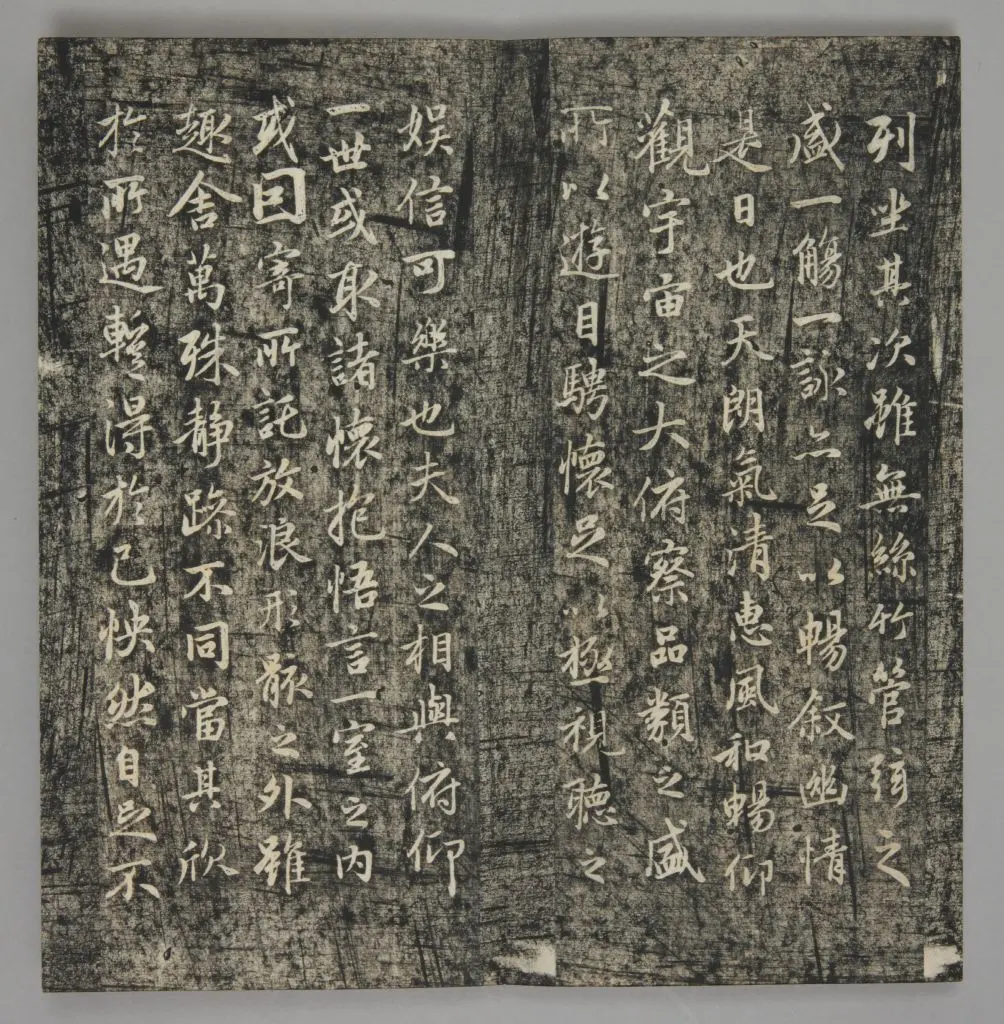 列坐其次雖無絲竹管弦之
盛一觴一詠亦足以暢敘幽情
是日也天朗氣清惠風和暢仰
觀宇宙之大俯察品類之盛
所以遊目騁懷足以極視聽之
娛信可樂也夫人之相與俯仰
一世或取諸懷抱悟言一室之內
或因寄所託放浪形骸之外雖
趣舍萬殊靜躁不同當其欣
於所遇蹔得於己怏然自足不